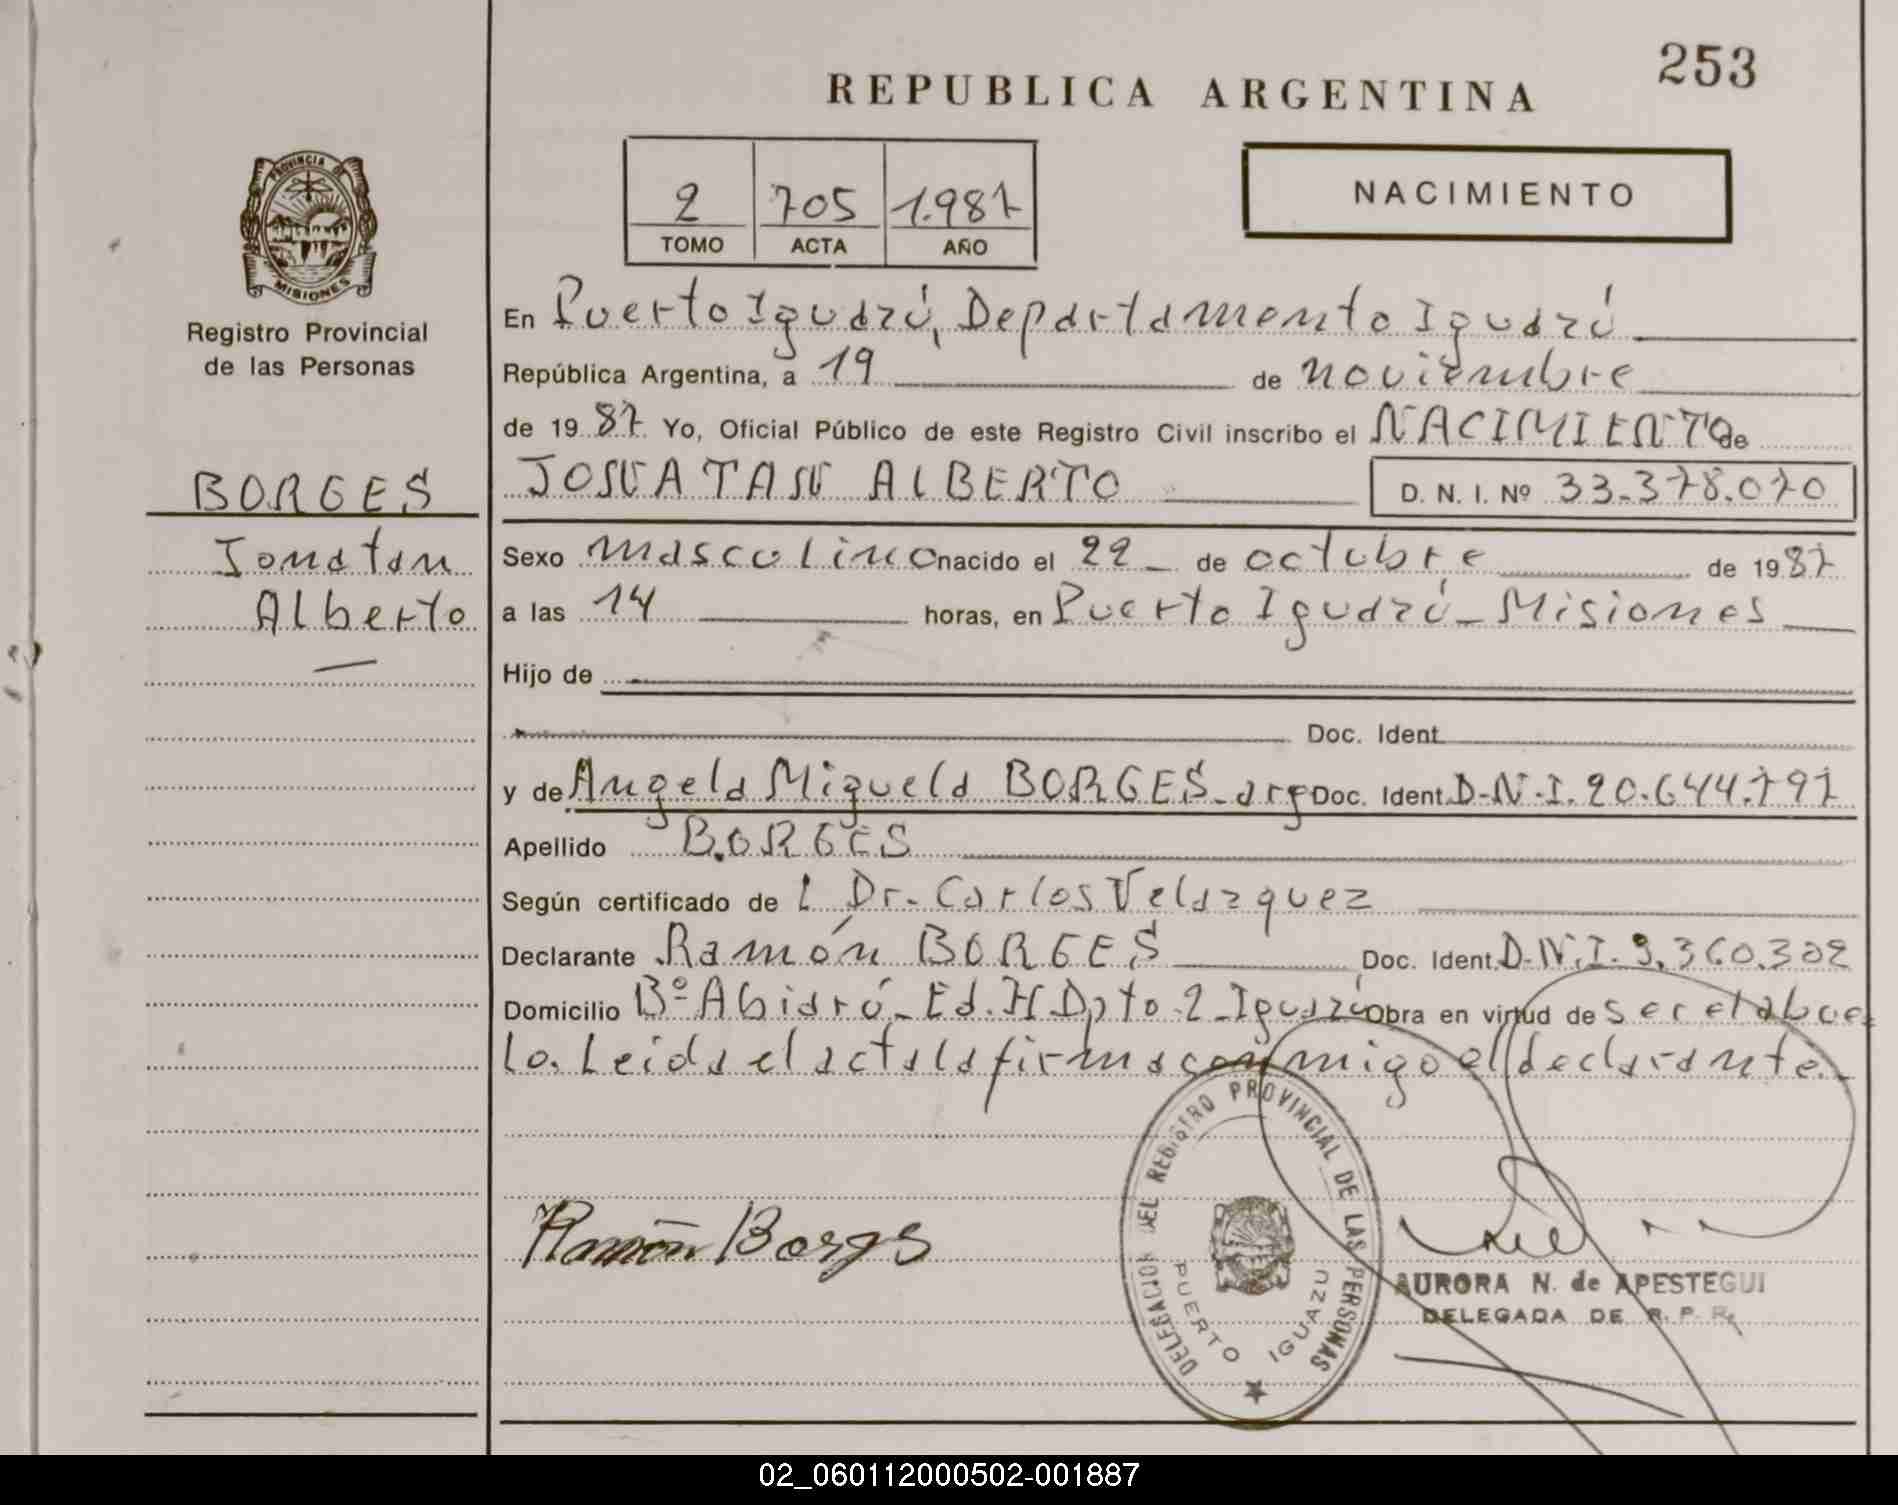 253
REPUBLICA ARGENTINA
2 705 1.987
TOMO ACTA AÑO
NACIMIENTO
PROVINCIA DE
MISIONES
Registro Provincial
de las Personas
BORGES
Jonatan
Alberto
En Puerto Iguazú, Departamento Iguazú
República Argentina, a 19 de noviembre
de 19 87 Yo, Oficial Público de este Registro Civil inscribo el NACIMIENTO de
JONATAN ALBERTO D. N. I. Nº 33.378.070
Sexo masculino nacido el 22 de octubre de 1987
a las 14 horas, en Puerto Iguazú - Misiones
Hijo de
Doc. Ident.
y de Angela Miguela BORGES - arg Doc. Ident. D.N.I. 20.644.797
Apellido BORGES
Según certificado de L Dr. Carlos Velazquez
Declarante Ramón BORGES Doc. Ident. D.N.I. 9.360.302
Domicilio Bº Abidrú - Ed. H Dpto 2 - Iguazú Obra en virtud de ser el abue
lo. Leida el acta la firma conmigo el declarante.-
DELEGACION DEL REGISTRO PROVINCIAL DE LAS PERSONAS
PUERTO IGUAZU
Ramón Borgs
AURORA N. de APESTEGUI
DELEGADA DE R. P. P.
02_060112000502-001887